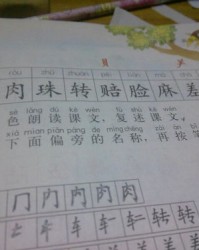 ròu zhū zhuàn péi liǎn má
肉 珠 转 赔 脸 麻 差
sè lǎng dú kè wén fù shù kè wén
色朗读课文,复述课文,
xià miàn piān páng de míng chēng zài àn
下面偏旁的名称,再按
冂 内 内 肉 肉
车 转 转 转